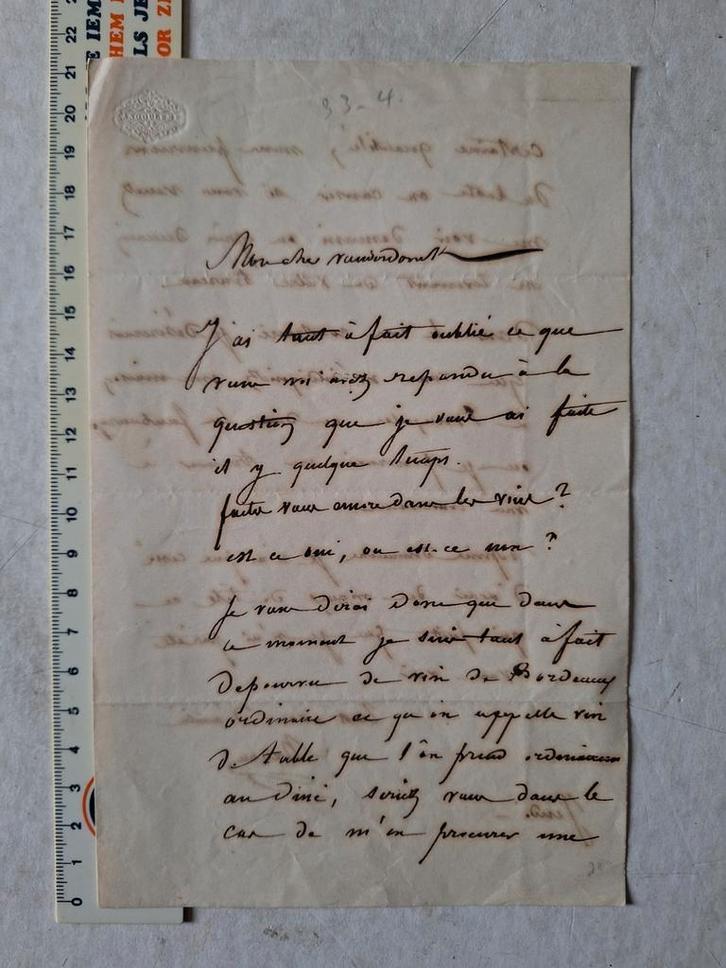 33-4.
Mon cher vanderdonck
J'ai tout à fait oublié ce que
vous m'avez repondu à la
question que je vous ai faite
il y quelque temps.
faites vous encore dans les vins?
est ce oui, ou est-ce non?
Je vous dirai donc que dans
ce moment je suis tout à fait
depourvu de vin de Bordeaux
ordinaire ce qu'on appelle vin
de table que l'on prend ordinairement
au diné, seriez vous dans le
cas de m'en procurer une
22
21
20
19
18
17
16
15
14
13
12
11
10
9
8
7
6
5
4
3
2
1
0